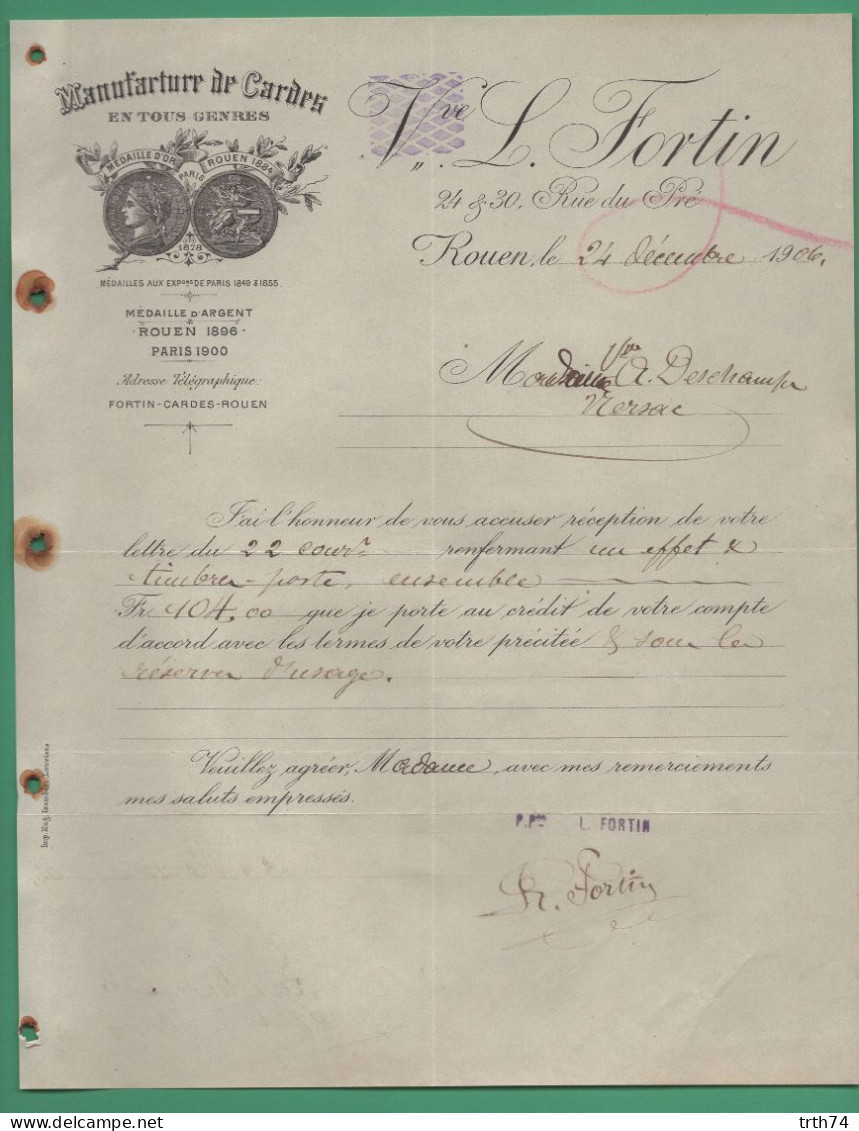 Manufacture de Cardes
EN TOUS GENRES
MÉDAILLE D'OR
PARIS
ROUEN 1884
1878
MÉDAILLES AUX EXPONS DE PARIS 1849 & 1855.
MÉDAILLE D'ARGENT
ROUEN 1896
PARIS 1900
Adresse Télégraphique:
FORTIN-CARDES-ROUEN
Vve L. Fortin
24 & 30, Rue du Pré
Rouen, le 24 décembre 1906.
Vve A. Deschamps
Nersac
J'ai l'honneur de vous accuser réception de votre
lettre du 22 cour^t renfermant un effet &
timbres-poste, ensemble
Fr. 104,00 que je porte au crédit de votre compte
d'accord avec les termes de votre précitée & sous les
réserves d'usage.
Veuillez agréer, Madame, avec mes remerciements
mes saluts empressés.
P. Pon L. FORTIN
R. Fortin
trth74